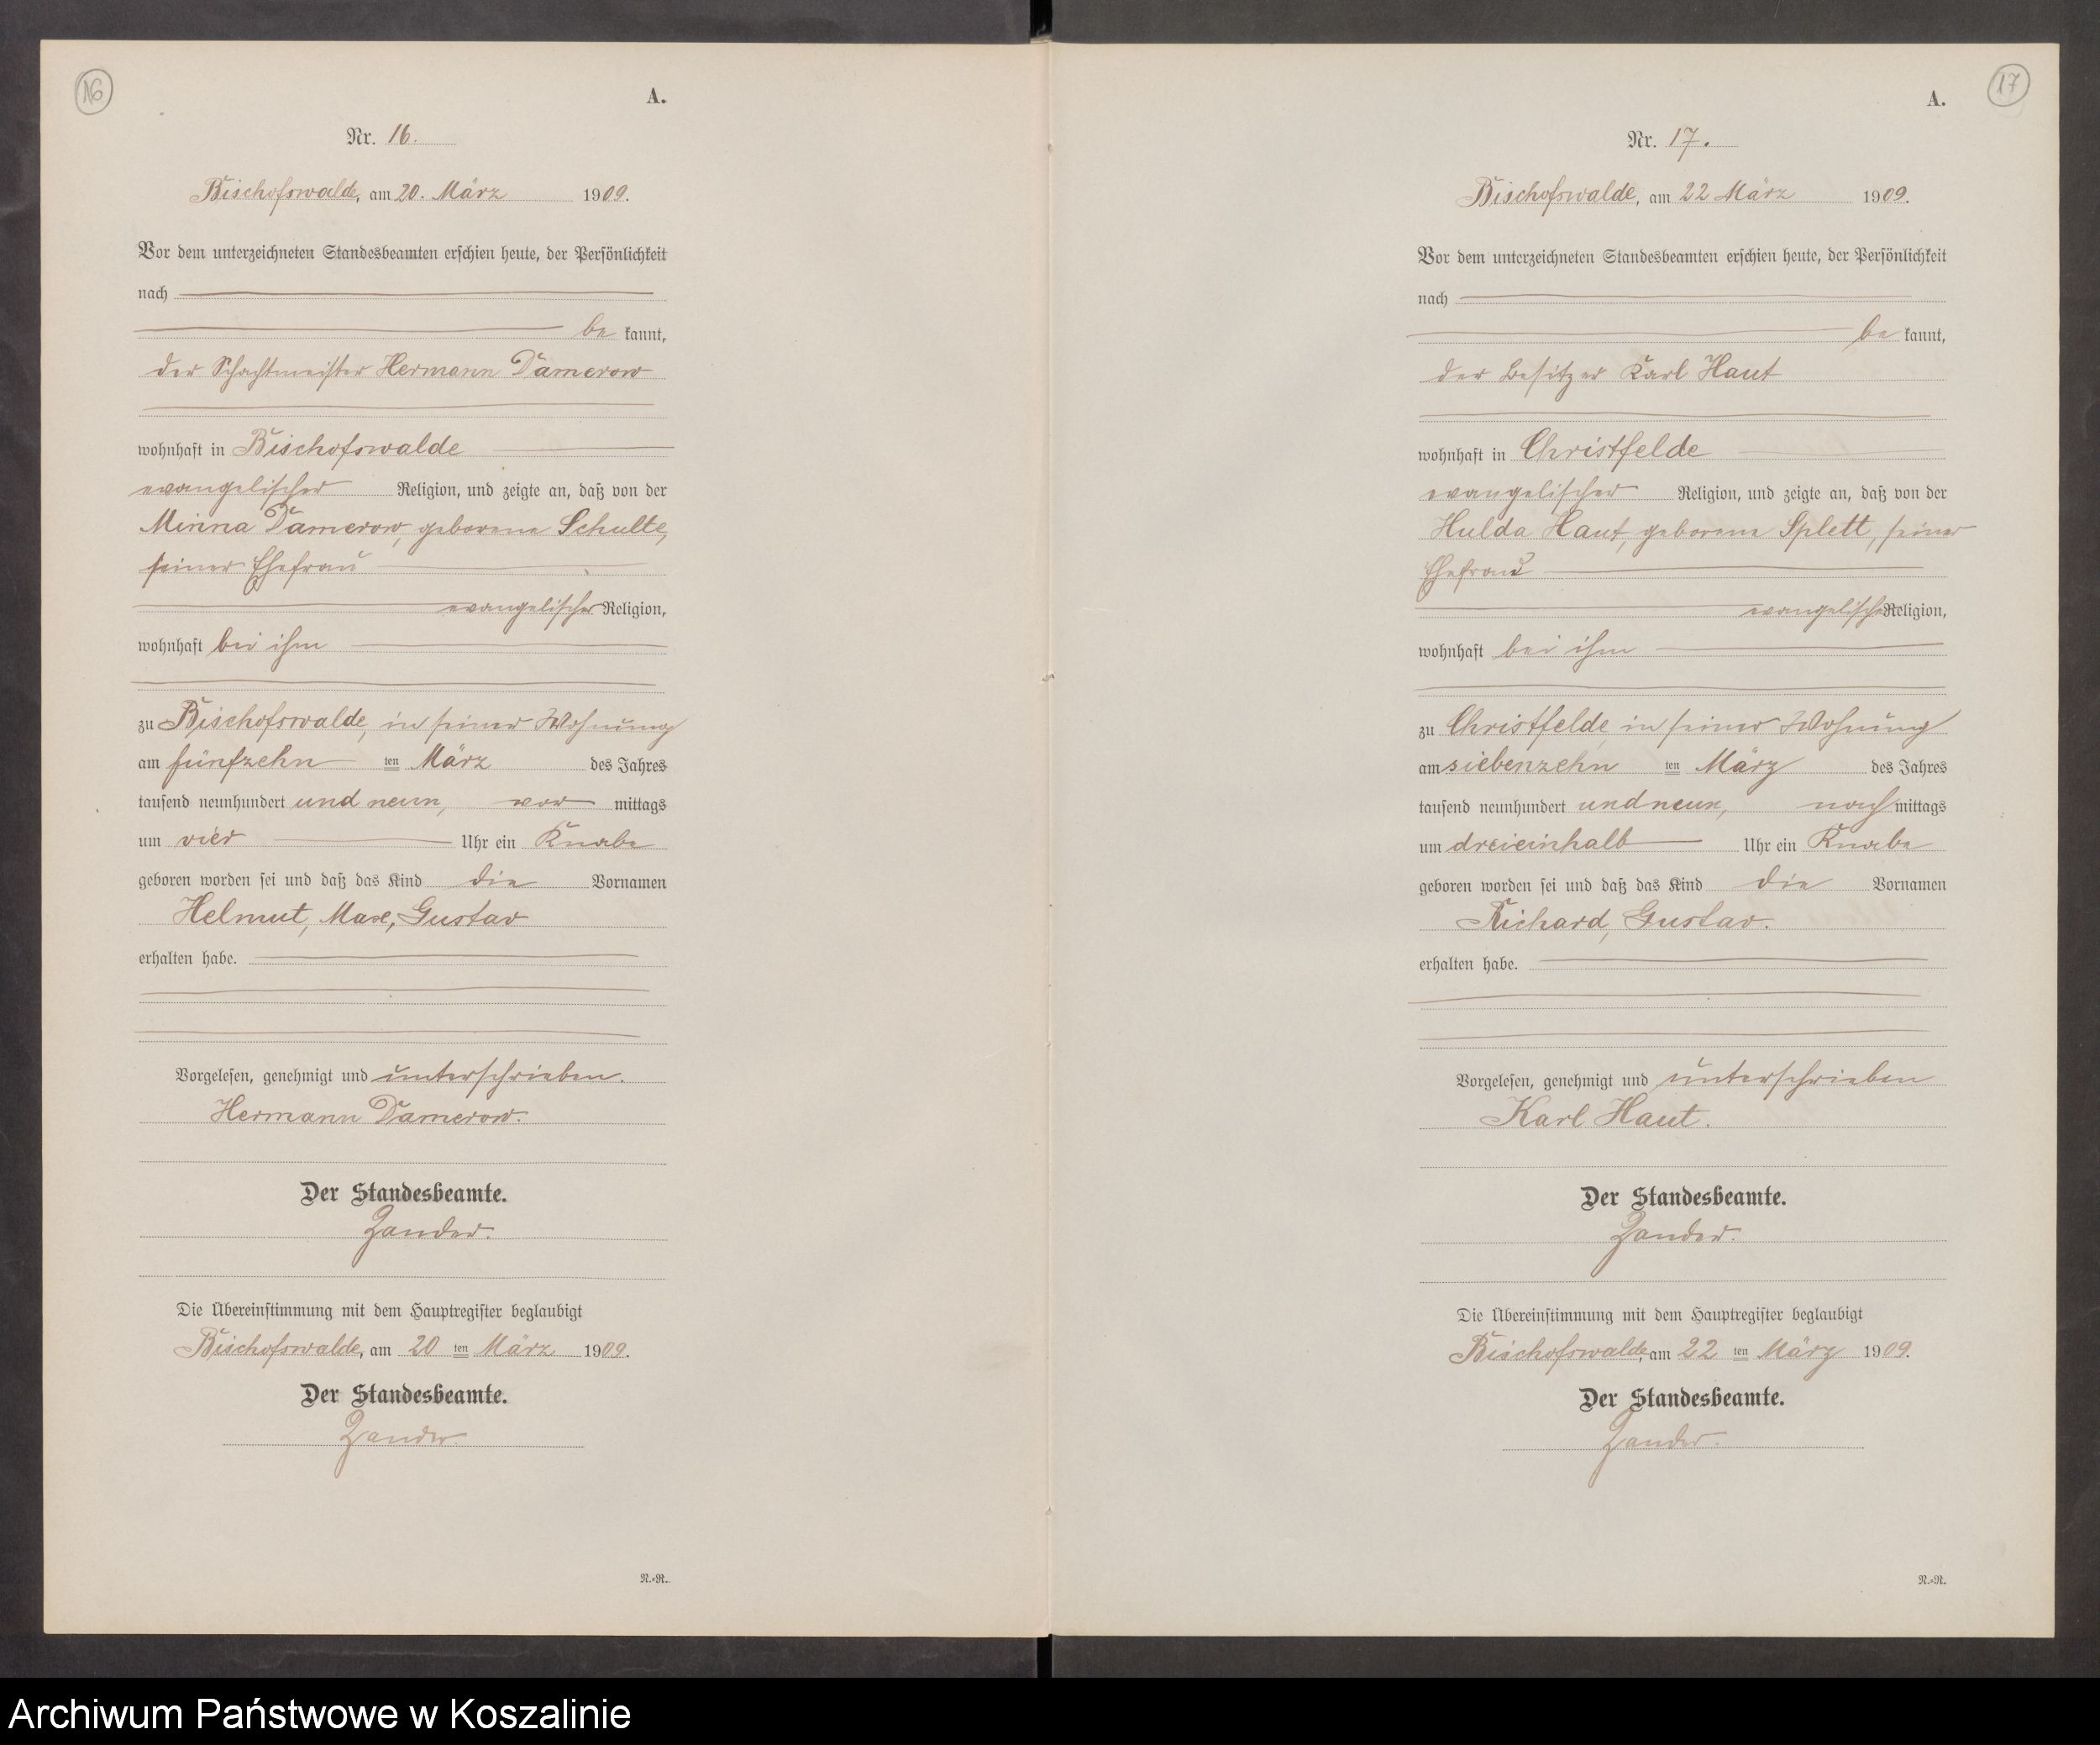 16
A.
Nr. 16.
Bischofswalde, am 20. März 1909.
Vor dem unterzeichneten Standesbeamten erschien heute, der Persönlichkeit
nach
be kannt,
der Schachtmeister Hermann Damerow
wohnhaft in Bischofswalde
evangelischer Religion, und zeigte an, daß von der
Minna Damerow, geborene Schulte,
seiner Ehefrau
evangelischer Religion,
wohnhaft bei ihm
zu Bischofswalde, in seiner Wohnung
am fünfzehn ten März des Jahres
tausend neunhundert und neun, vor mittags
um vier Uhr ein Knabe
geboren worden sei und daß das Kind die Vornamen
Helmut, Max, Gustav
erhalten habe.
Vorgelesen, genehmigt und unterschrieben.
Hermann Damerow.
Der Standesbeamte.
Zander.
Die Übereinstimmung mit dem Hauptregister beglaubigt
Bischofswalde, am 20 ten März 1909.
Der Standesbeamte.
Zander
N.=N.
17
A.
Nr. 17.
Bischofswalde, am 22 März 1909.
Vor dem unterzeichneten Standesbeamten erschien heute, der Persönlichkeit
nach
be kannt,
der Besitzer Karl Haut
wohnhaft in Christfelde
evangelischer Religion, und zeigte an, daß von der
Hulda Haut, geborene Splett, seiner
Ehefrau
evangelischer Religion,
wohnhaft bei ihm
zu Christfelde in seiner Wohnung
am siebenzehn ten März des Jahres
tausend neunhundert und neun, nach mittags
um dreieinhalb Uhr ein Knabe
geboren worden sei und daß das Kind die Vornamen
Richard, Gustav.
erhalten habe.
Vorgelesen, genehmigt und unterschrieben
Karl Haut.
Der Standesbeamte.
Zander.
Die Übereinstimmung mit dem Hauptregister beglaubigt
Bischofswalde, am 22 ten März 1909.
Der Standesbeamte.
Zander.
N.=N.
Archiwum Państwowe w Koszalinie